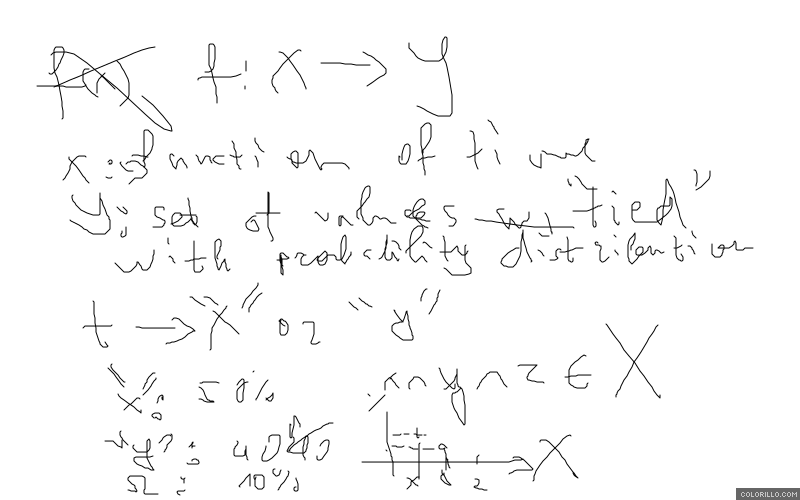 f: x → y
x: function of time
y: set of values "tied"
with probability distribution
t → "x" or "y"
"x": 50%
x ∩ y ∩ z ∈ X
"y": 40%
z: 10%
x y z X
COLORILLO.COM